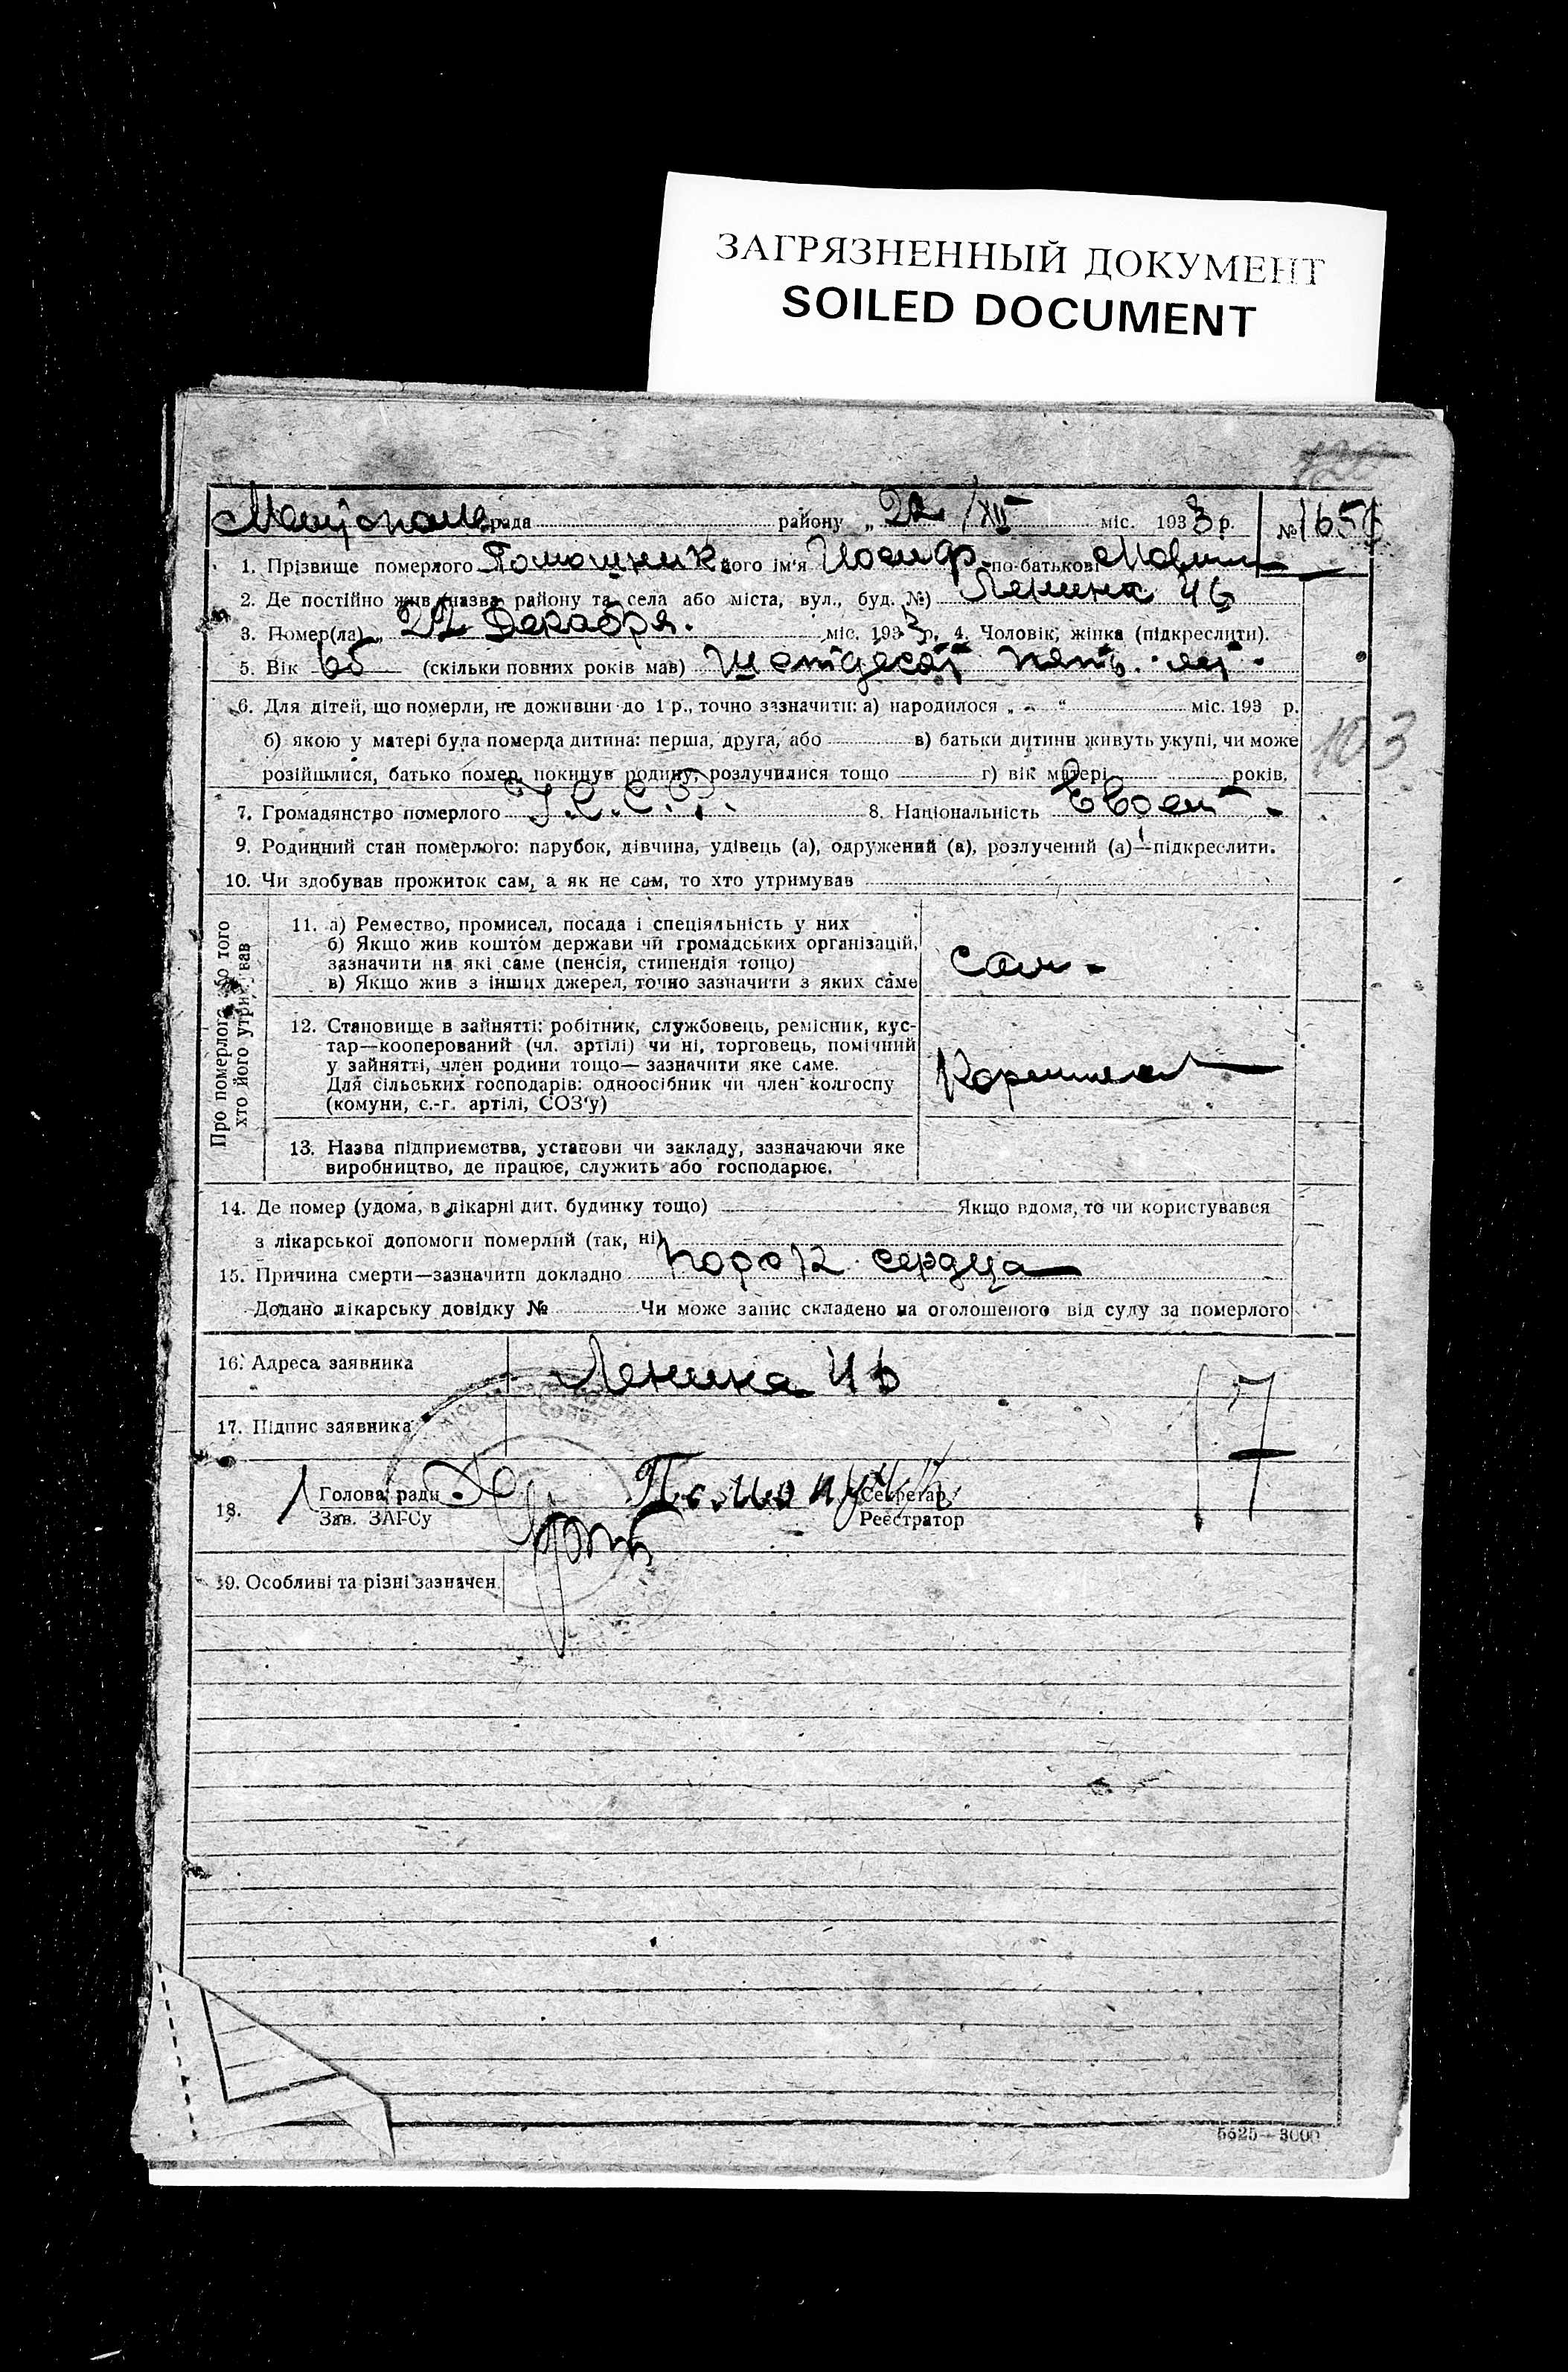 ЗАГРЯЗНЕННЫЙ ДОКУМЕНТ
SOILED DOCUMENT
рада району „ 22 /XII міс. 1933 р. № 165
1. Прізвище померлого його ім'я Иосиф по-батькові
2. Де постійно жив (назва району та села або міста, вул., буд. №) Ленина 46
3. Помер(ла) „ 22 Декабря. міс. 1933 р. 4. Чоловік, жінка (підкреслити).
5. Вік 65 (скільки повних років мав) Шестдесят пять лет.
6. Для дітей, що померли, не доживши до 1 р., точно зазначити: а) народилося „ “ міс. 193 р.
103
б) якою у матері була померла дитина: перша, друга, або в) батьки дитини живуть укупі, чи може
розійшлися, батько помер, покинув родину, розлучилися тощо г) вік матері років.
7. Громадянство померлого У.С.С.Р. 8. Національність Еврей
9. Родинний стан померлого: парубок, дівчина, удівець (а), одружений (а), розлучений (а)—підкреслити.
10. Чи здобував прожиток сам, а як не сам, то хто утримував
Про померлого або того хто його утримував
11. а) Ремество, промисел, посада і спеціяльність у них
б) Якщо жив коштом держави чи громадських організацій,
зазначити на які саме (пенсія, стипендія тощо)
в) Якщо жив з інших джерел, точно зазначити з яких саме
сам
12. Становище в зайнятті: робітник, службовець, ремісник, кус-
тар—кооперований (чл. артілі) чи ні, торговець, помічний
у зайнятті, член родини тощо— зазначити яке саме.
Для сільських господарів: одноосібник чи член колгоспу
(комуни, с.-г. артілі, СОЗ'у)
13. Назва підприємства, установи чи закладу, зазначаючи яке
виробництво, де працює, служить або господарює.
14. Де помер (удома, в лікарні дит. будинку тощо) Якщо вдома, то чи користувався
з лікарської допомоги померлий (так, ні)
15. Причина смерти—зазначити докладно порок сердца
Додано лікарську довідку № Чи може запис складено на оголошеного від суду за померлого
16. Адреса заявника Ленина 46
17. Підпис заявника
17
18. Голова ради Секретар
Зав. ЗАГСу Реєстратор
19. Особливі та різні зазначен.
5625—3000